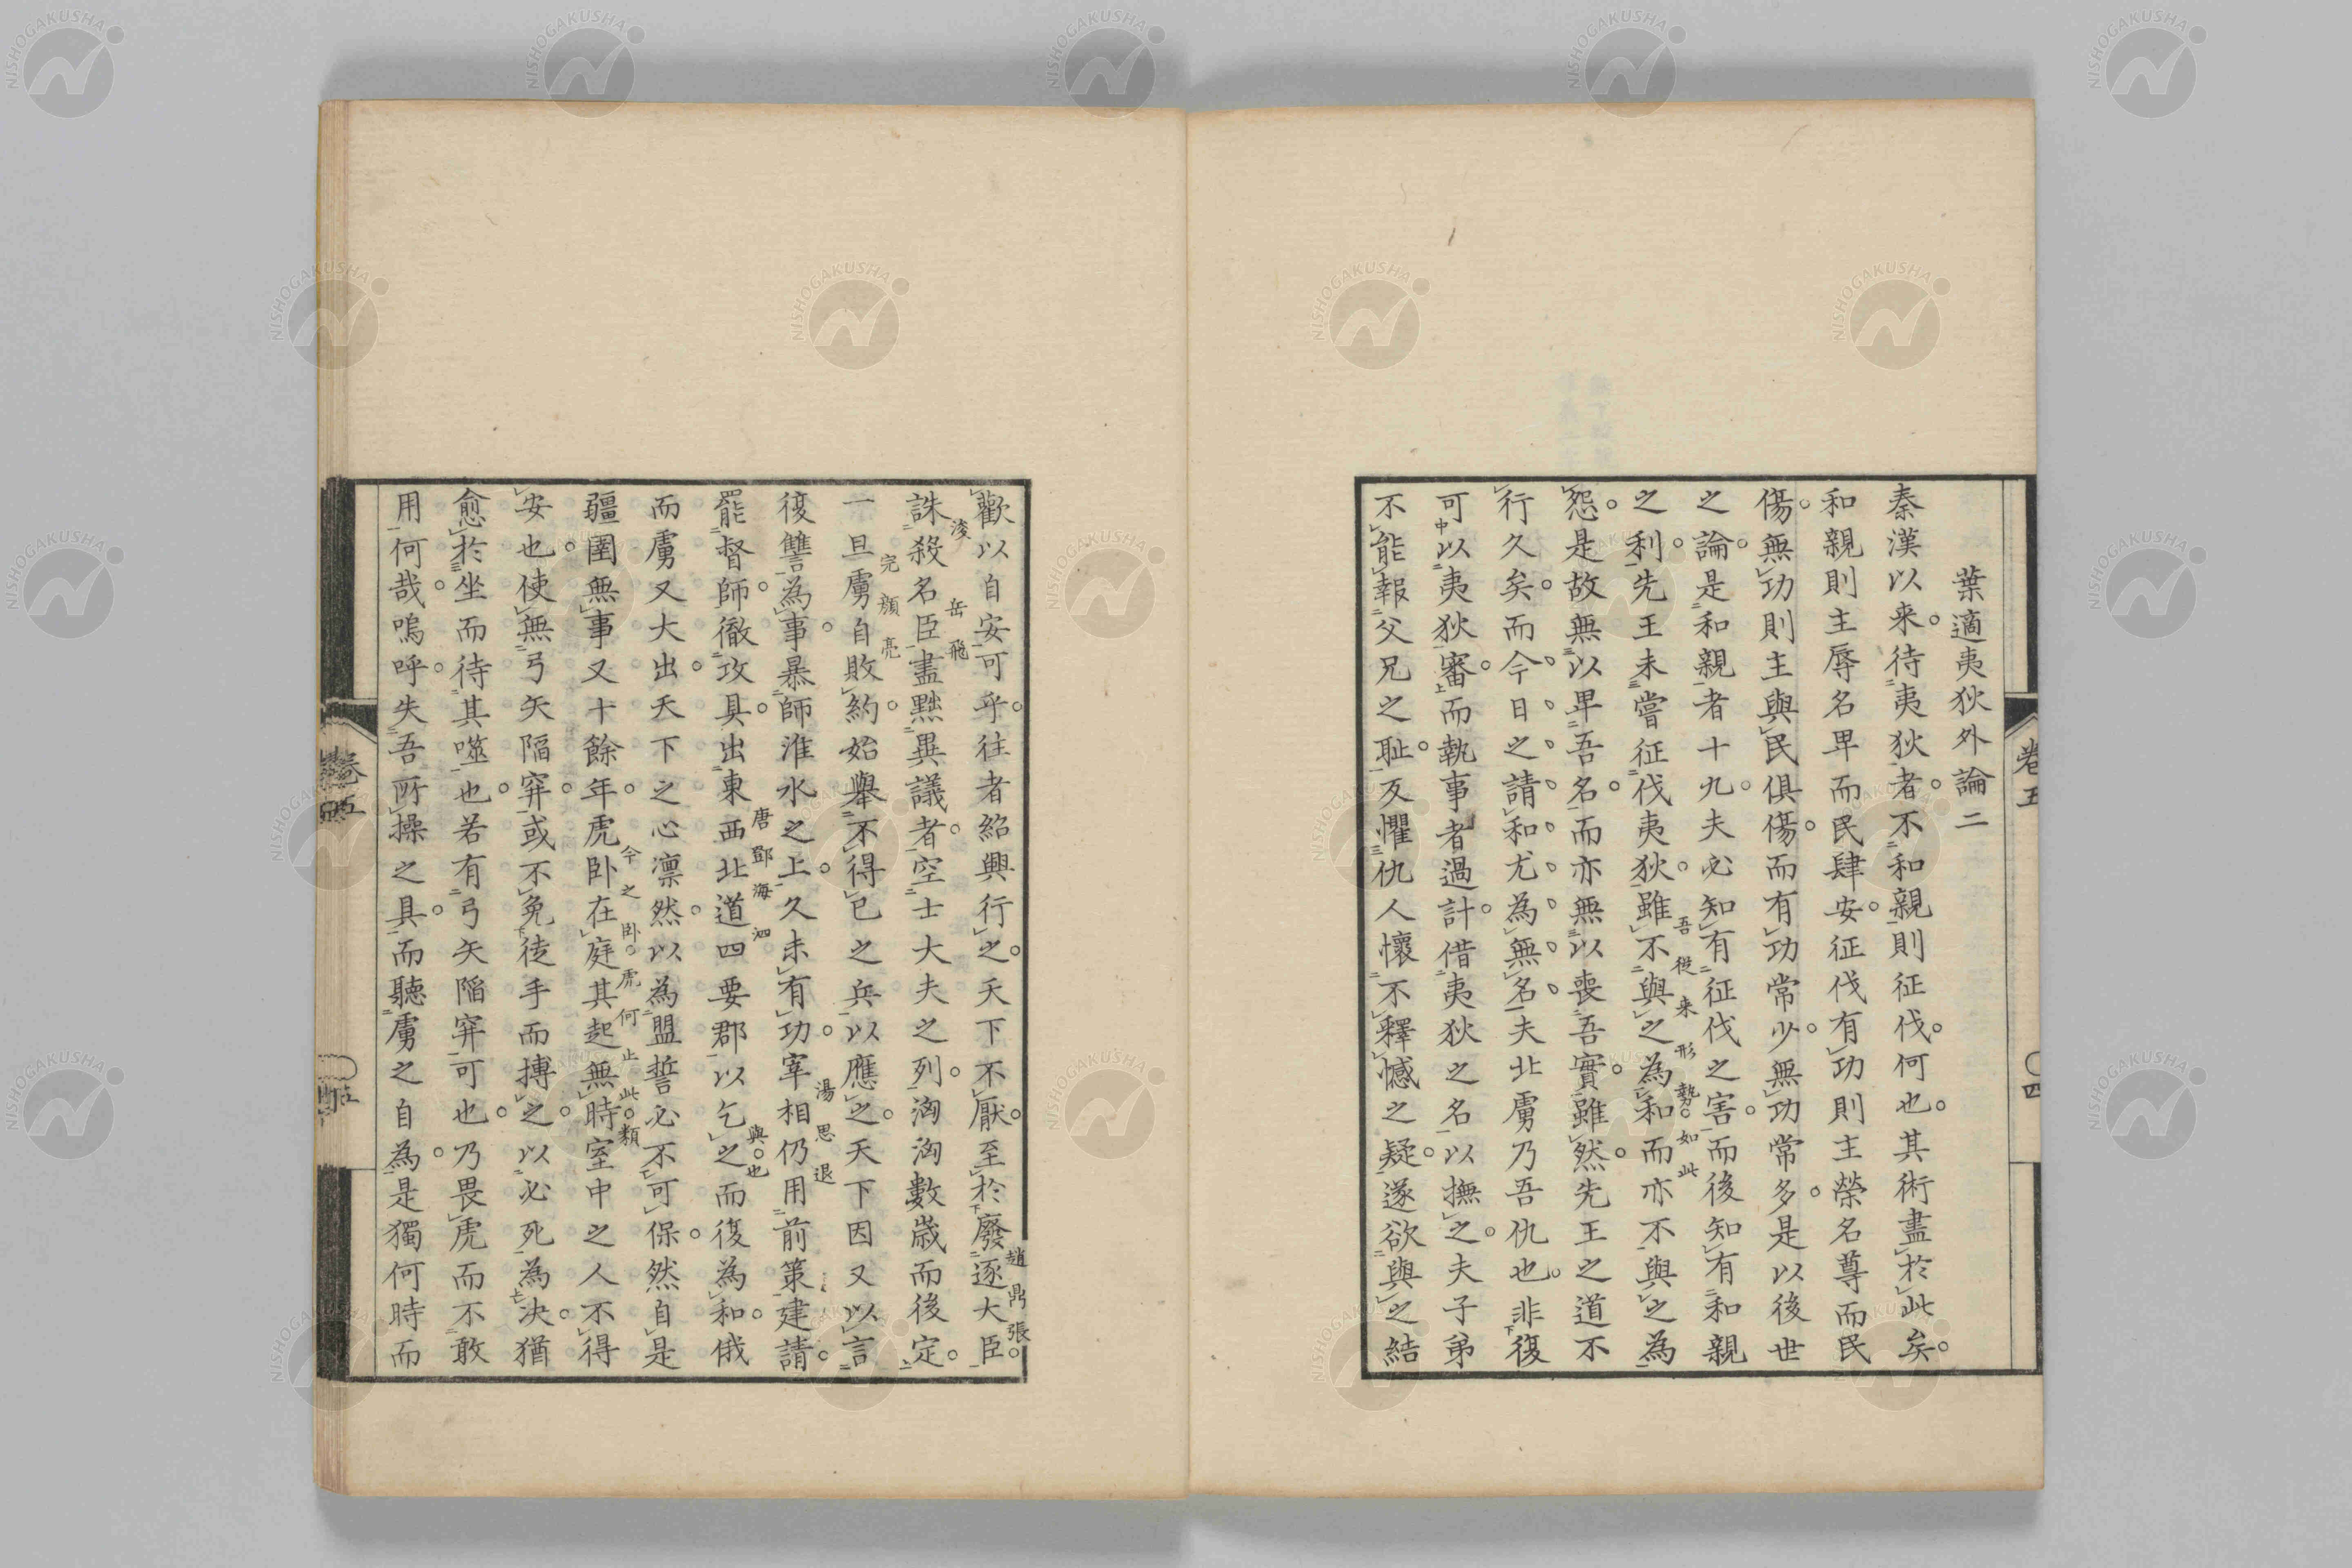 卷五
〇四
葉適夷狄外論二
秦漢以来。待夷狄者。不和親則征伐。何也。其術盡於此矣。
和親則主辱名卑而民肆安。征伐有功則主榮名尊而民
傷。無功則主與民俱傷。而有功常少。無功常多。是以後世
之論。是和親者十九。夫必知有征伐之害。而後知有和親
之利。先王未嘗征伐夷狄。雖不與之為和而亦不與之為
吾從来形勢。如此
怨。是故無以卑吾名。而亦無以喪吾實。雖然。先王之道不
行久矣。而今日之請和尤為無名夫北虜乃吾仇也。非復
可以夷狄審。而執事者過計。借夷狄之名以撫之。夫子弟
不能報父兄之耻。反懼仇人懷不釋憾之疑。遂欲與之結
歡以自安可乎。往者紹興行之。天下不厭。至於廢逐大臣。
趙鼎張。
浚
岳飛
誅殺名臣盡黜異議者。空士大夫之列。洶洶數歳而後定。
一旦虜自敗約。始舉不得已之兵以應之。天下因又以言
完顔亮
復讐為事。暴師淮水之上。久未有功。宰相仍用前策建請。
湯思退
罷督師。徹攻具。出東西北道四要郡以乞之而復為和。俄
唐鄧海泗
與。也
而虜又大出。天下之心凛然。以為盟誓必不可保。然自是
疆圉無事又十餘年。虎卧在庭其起無時室中之人不得
今之卧。虎何止此。類
安也。使無弓矢陥穽。或不免徒手而搏之。以必死為決。猶
愈於坐而待其噬也。若有弓矢陥穽可也。乃畏虎而不敢
用何哉。嗚呼。失吾所操之具。而聽虜之自為。是獨何時而
卷五
NISHOGAKUSHA